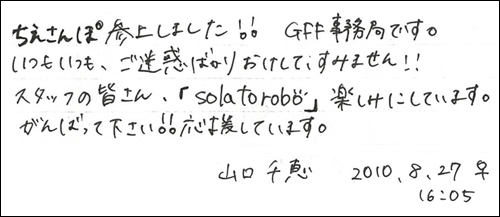 ちえさんぽ参上しました!! GFF事務局です。
いつもいつも、ご迷惑ばかりおけして、すみません!!
スタッフの皆さん、「solatorobo」楽しみにしています。
がんばって下さい!!応援しています。
山口千恵 2010.8.27
16:05